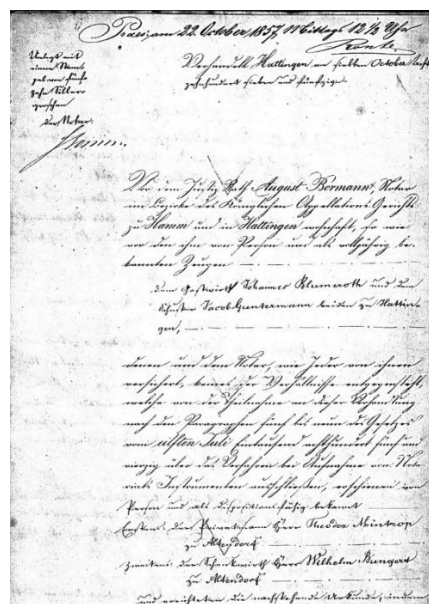 Praes: am 22. October 1857, Mittags 12 1/2 Uhr
Belegt mit
einem Stempel
von fünf
zehn Silber
groschen
Der Notar:
Verhandelt Hattingen am siebten October
sieben und fünfzig.
Vor dem Justiz-Rath August Bormann, Notar
im Bezirke des Königlichen Appellations-Gerichts
zu Hamm und in Hattingen wohnhaft, so wie
vor den ihm von Person und als volljährig be-
kannten Zeugen
dem Gastwirth Johannes Blumeroth und dem
Schuster Jacob Guntermann beiden zu Hattin-
gen,
denen und dem Notar, wie Jeder von ihnen
versichert, keines der Verhältnisse entgegensteht,
welche von der Theilnahme an dieser Verhandlung
nach den Paragraphen fünf bis neun des Gesetzes
vom eilften Juli eintausend achthundert fünf und
vierzig über das Verfahren bei Aufnahme von Nota-
riats Instrumenten ausschließen, erschienen von
Person und als dispositionsfähig bekannt
Erstens: der Herr Theodor Mintrop
zu Altendorf
zweitens: der Schenkwirth Herr Wilhelm Bungert
zu Altendorf
und errichteten die nachstehende Urkunde, indem